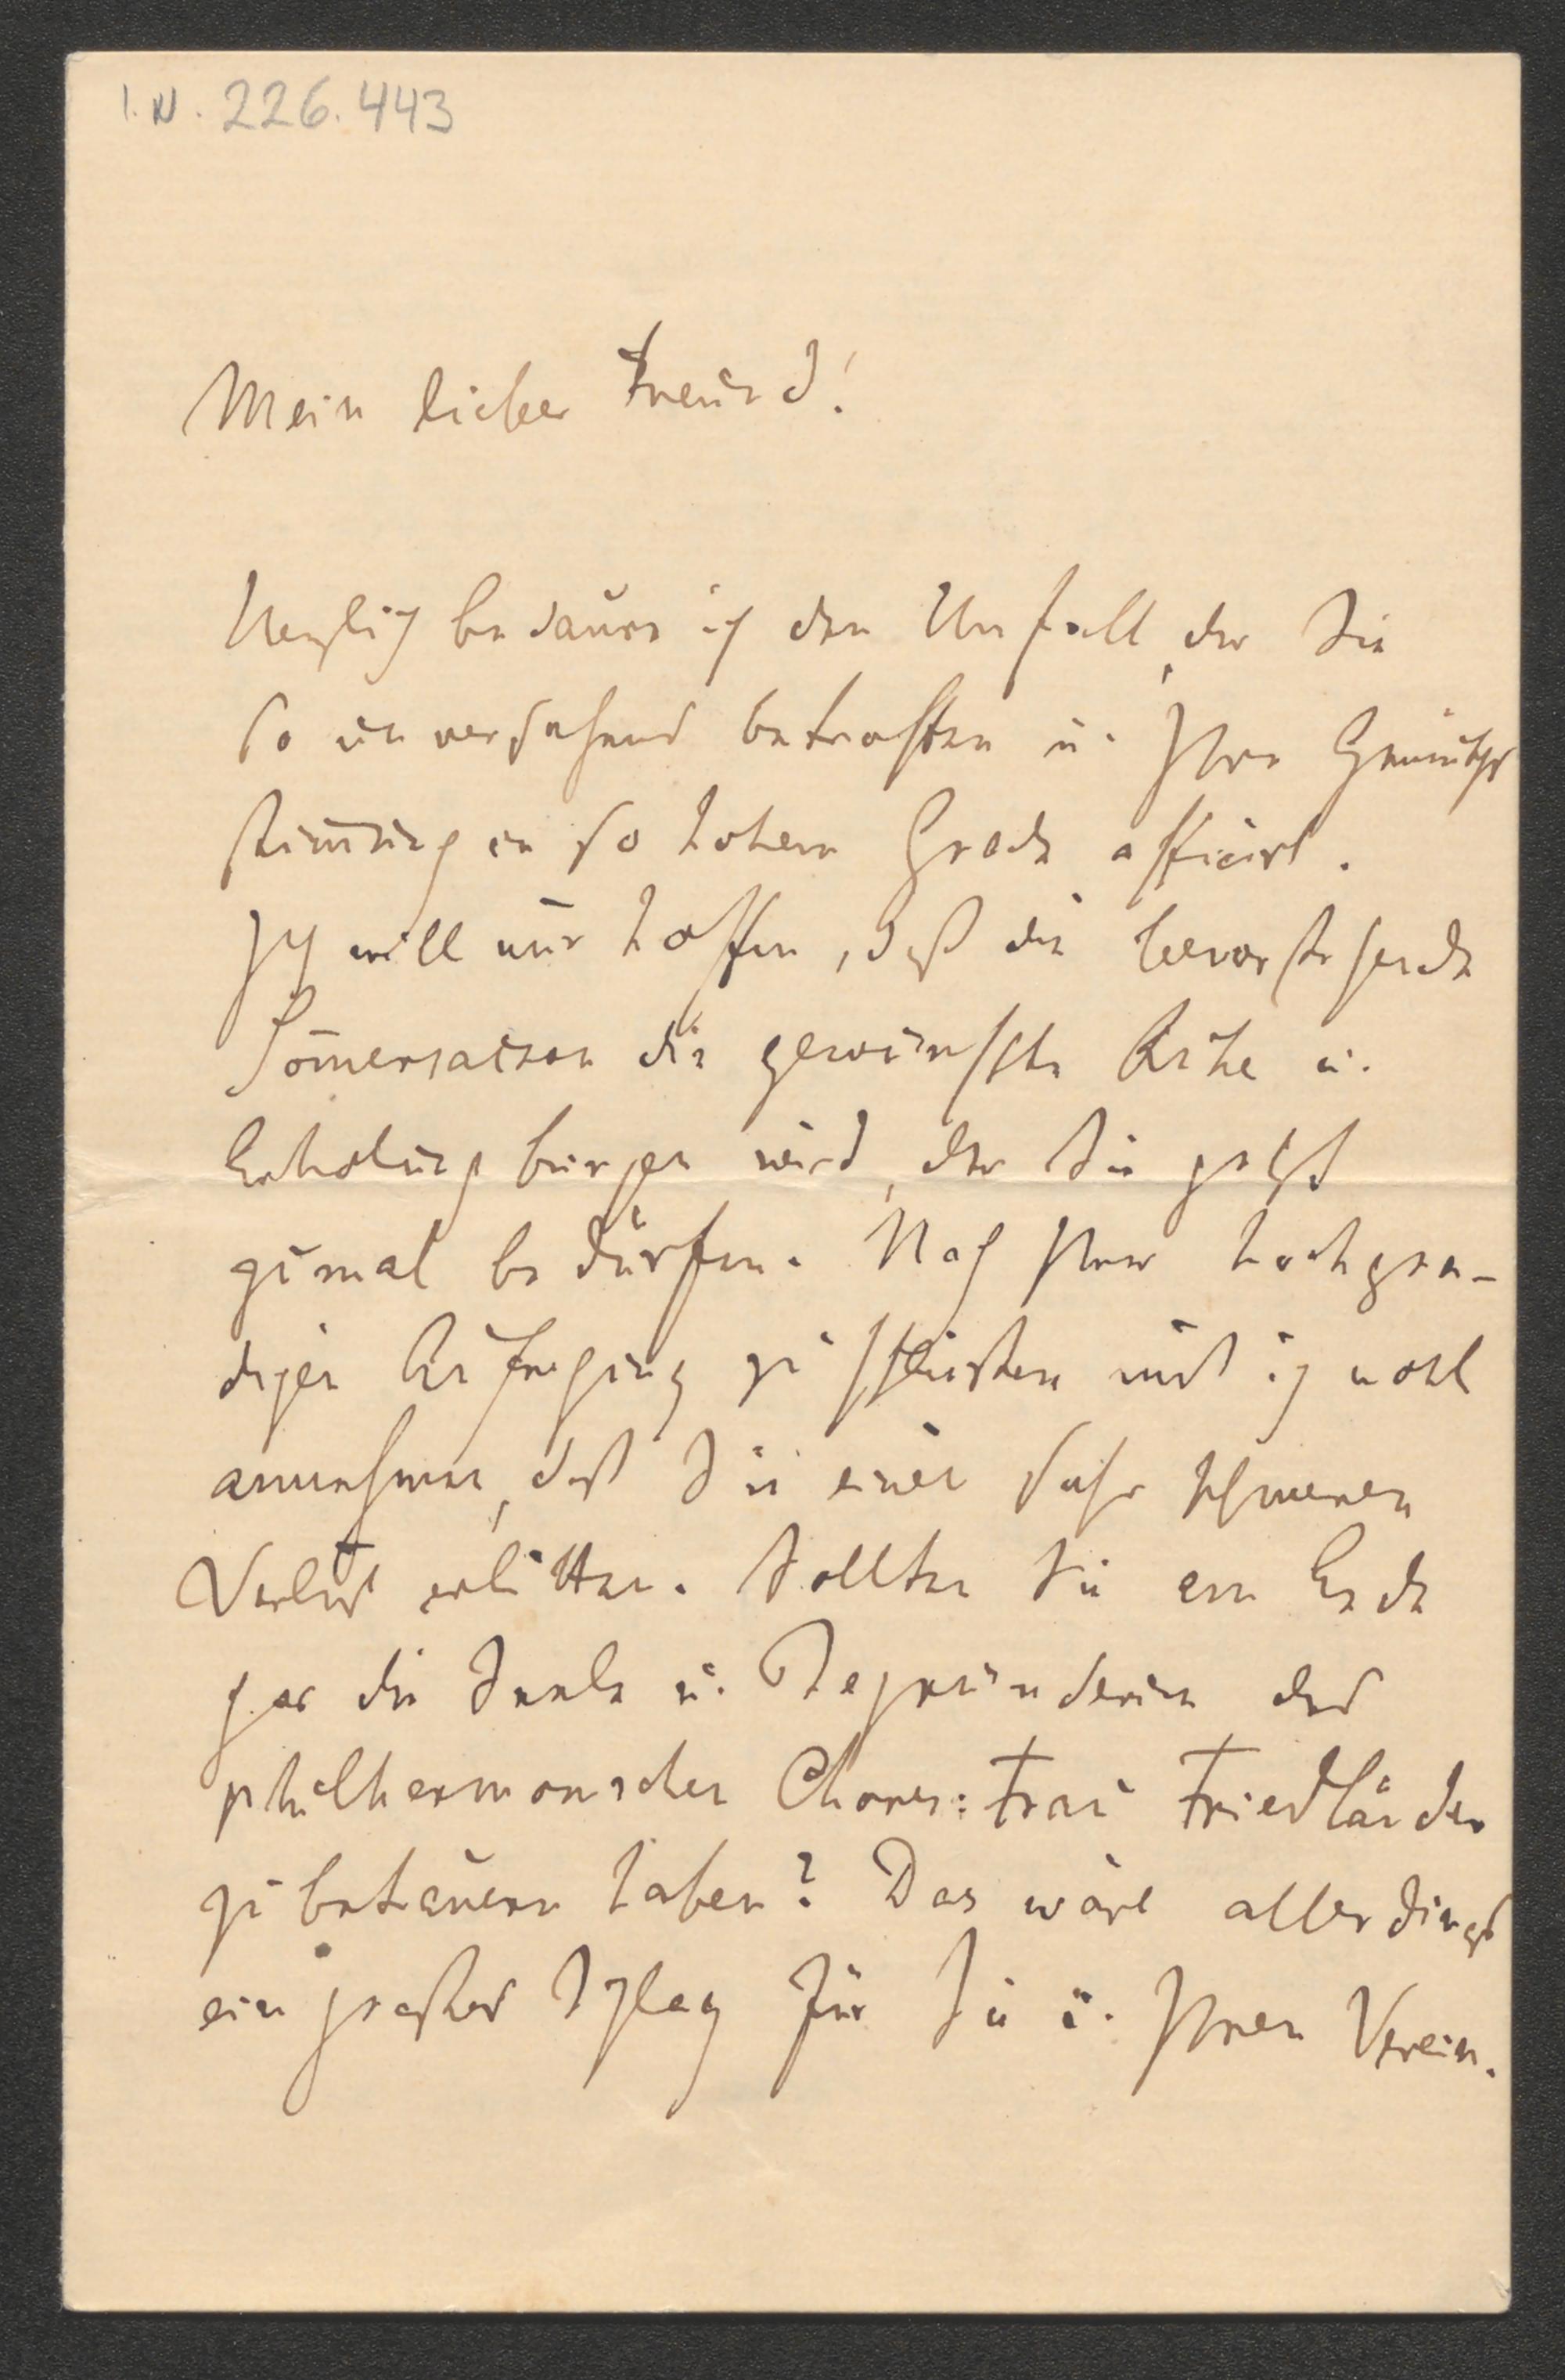 I.N. 226.443
Mein lieber Freund!
Herzlich bedaure ich den Unfall, der Sie
so unversehens betroffen u. Ihre Gemüths
stimmung in so hohem Grade afficirt.
Ich will nur hoffen, daß die bevorstehende
Sommersaison die gewünschte Ruhe u.
Erholung bringen wird, der Sie jetzt
zumal bedürfen. Nach Ihrer hochgra-
digen Aufregung zu schließen muß ich wohl
annehmen, daß Sie einen sehr schweren
Verlust erlitten. Sollten Sie am Ende
gar die Seele u. Begründerin des
philharmonischen Chores: Frau Friedländer
zu betrauern haben? Das wäre allerdings
ein großer Schlag für Sie u. Ihren Verein.